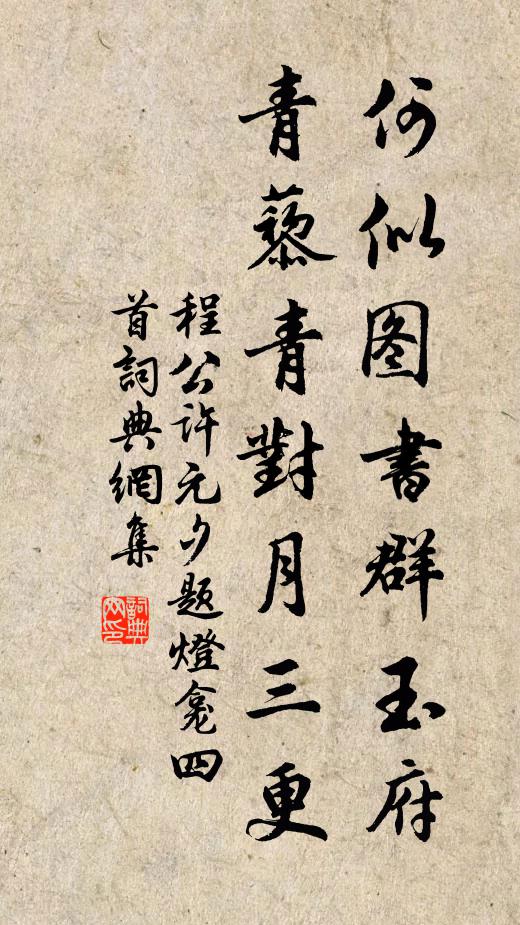 何似图書群玉府
青藜青對月三更
程公許元夕題燈龛四
首詞典網集
詞典
网印